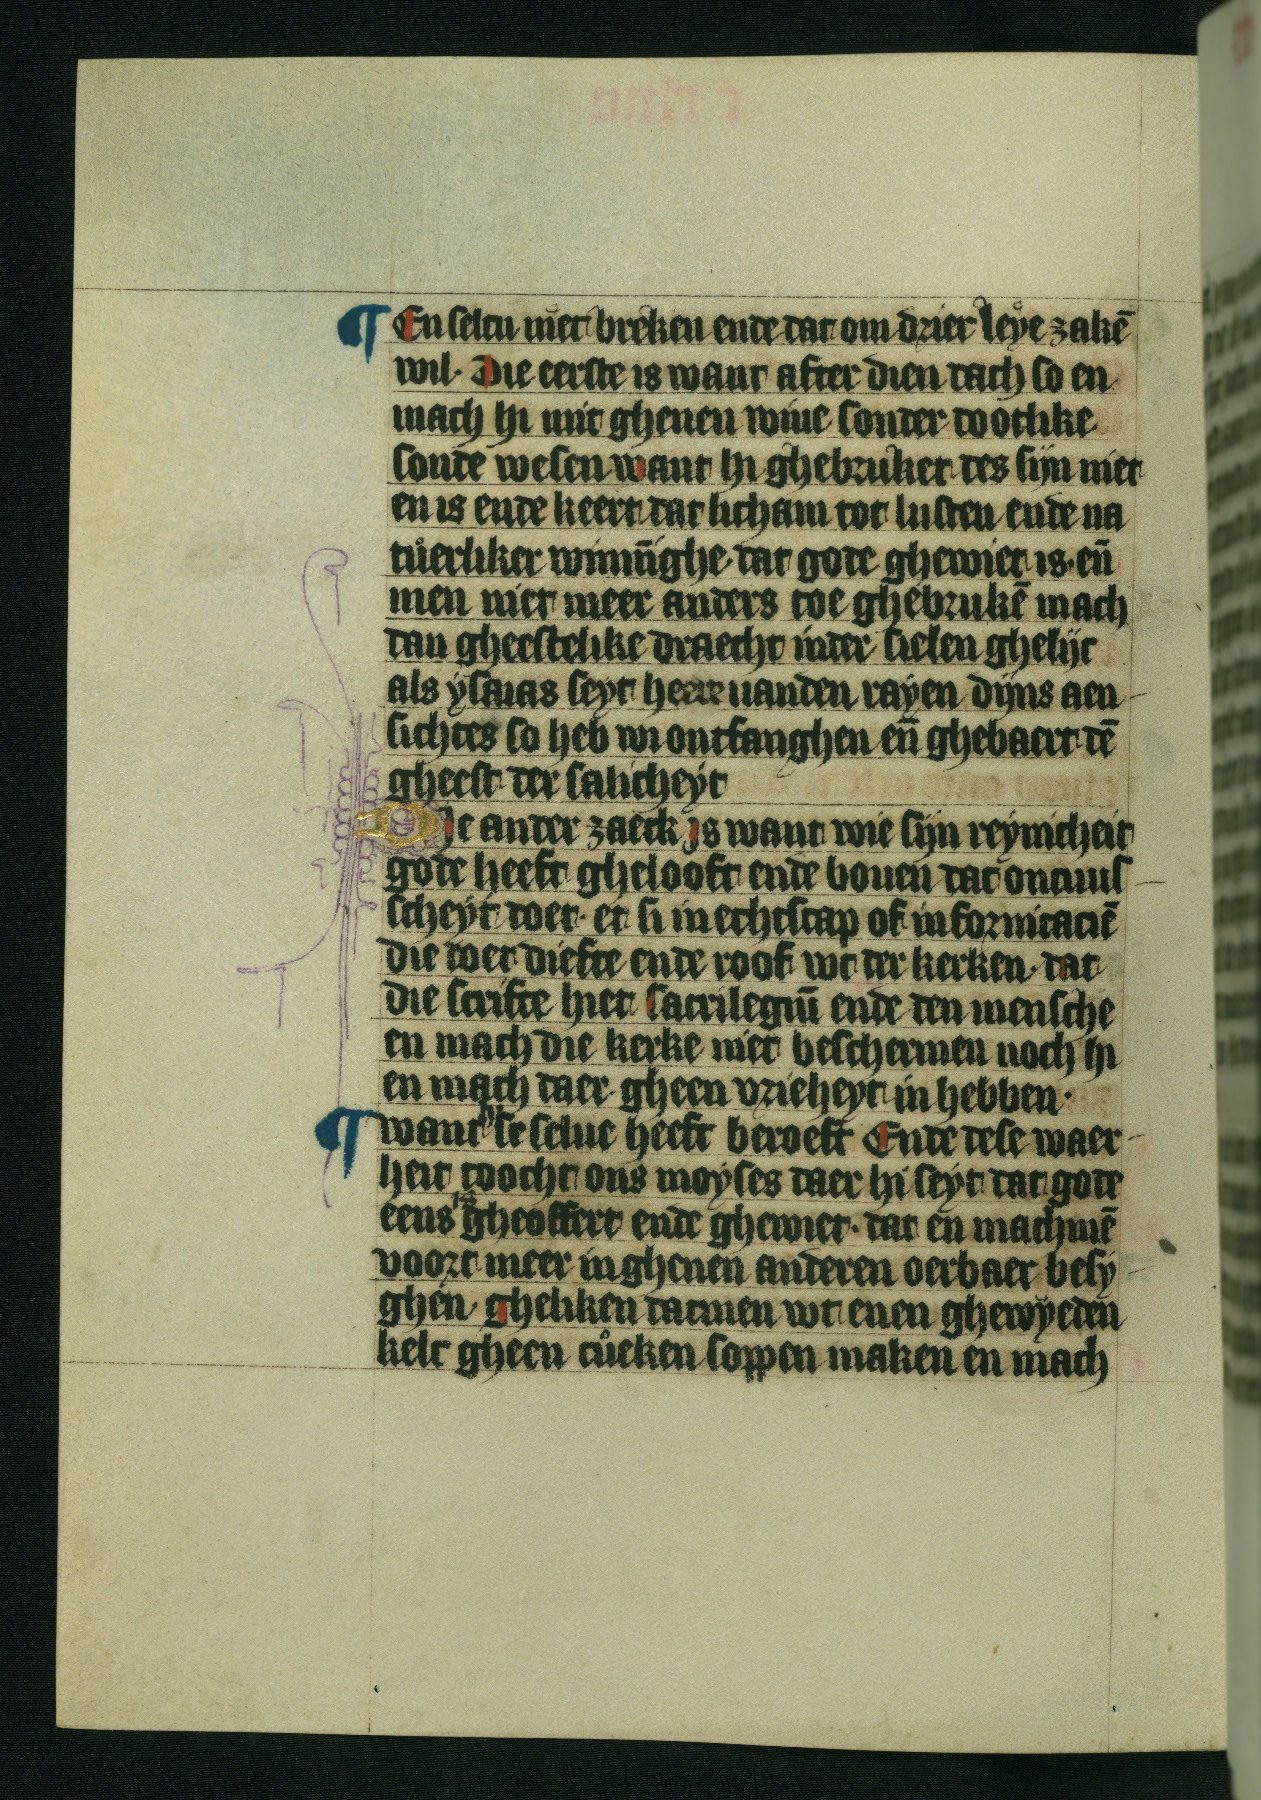 ¶ En seltu niet breken ende dat om drier leye zakē
wil. Die eerste is want after dien dach so en
mach hi mit ghenen wiue sonder dootlike
sonde wesen want hi ghebruket des sijn niet
en is ende keert dat licham tot lusten ende na
tuerliker winninghe dat gode ghewiet is. eñ
men niet meer anders toe ghebrukē mach
dan gheestelike draecht inder sielen ghelijc
als ysaias seyt heere uanden rayen dijns aen
sichtes so heb wi ontfanghen eñ ghebaert dē
gheest der salicheyt
Die ander zaeck is want wie sijn reynicheit
gode heeft ghelooft ende bouen dat oncuus
scheyt doet. et si in echtscap of in fornicaciē
die doet diefte ende roof wt der kerken. dat
die scrifte hiet sacrilegiū ende den mensche
en mach die kerke niet beschermen noch hi
en mach daer gheen vrieheyt in hebben.
¶ want hi se selue heeft beroeft Ende dese waer
heit toocht ons moyses daer hi seyt dat gode
eens is gheoffert ende ghewiet. dat en machmē
voort meer in ghenen anderen oerbaer besy
ghen. gheliken datmen wt enen ghewyeden
kelc gheen cueken soppen maken en mach